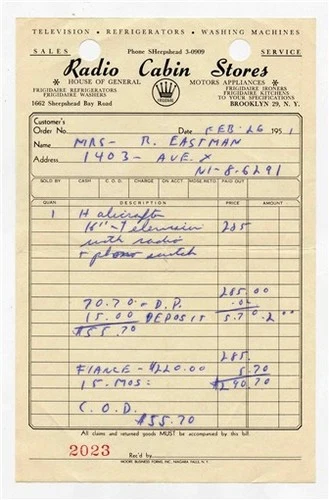 TELEVISION • REFRIGERATORS • WASHING MACHINES
SALES Phone SHeepshead 3-0909 SERVICE
Radio Cabin Stores
HOUSE OF GENERAL MOTORS APPLIANCES
FRIGIDAIRE REFRIGERATORS FRIGIDAIRE IRONERS
FRIGIDAIRE WASHERS FRIGIDAIRE KITCHENS
TO YOUR SPECIFICATIONS
1662 Sheepshead Bay Road BROOKLYN 29, N. Y.
Customer's
Order No. Date FEB 26 1951
Name MRS - R. EASTMAN
Address 1403 - AVE. X
NI-8-6291
SOLD BY CASH C.O.D. CHARGE ON ACCT. MDSE. RETD. PAID OUT
QUAN. DESCRIPTION PRICE AMOUNT
1 Halicrafter
16" - Television 285
with radio
+ phono switch
285.00
70.70 - D.P. .02
15.00 DEPOSIT 5.70.00
$55.70
285.
FIANCE - $220.00 5.70
15. MOS: $290.70
C.O.D.
$55.70
All claims and returned goods MUST be accompanied by this bill.
2023 Rec'd by
MOORE BUSINESS FORMS, INC., NIAGARA FALLS, N. Y.